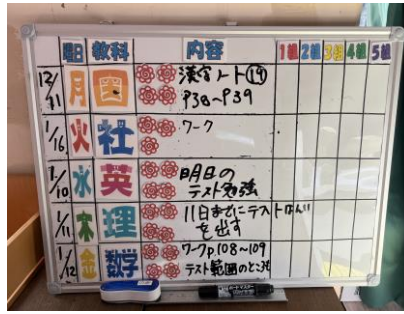 曜日 教科 内容 1組 2組 3組 4組 5組
12/11 月 国 漢字ノート⑲
P38～P39
1/16 火 社 ワーク
1/10 水 英 明日の
テスト勉強
1/11 木 理 11日までにテストなおし
を出す
1/12 金 数学 ワークp.108～109
テスト範囲のところ
ボードマスター